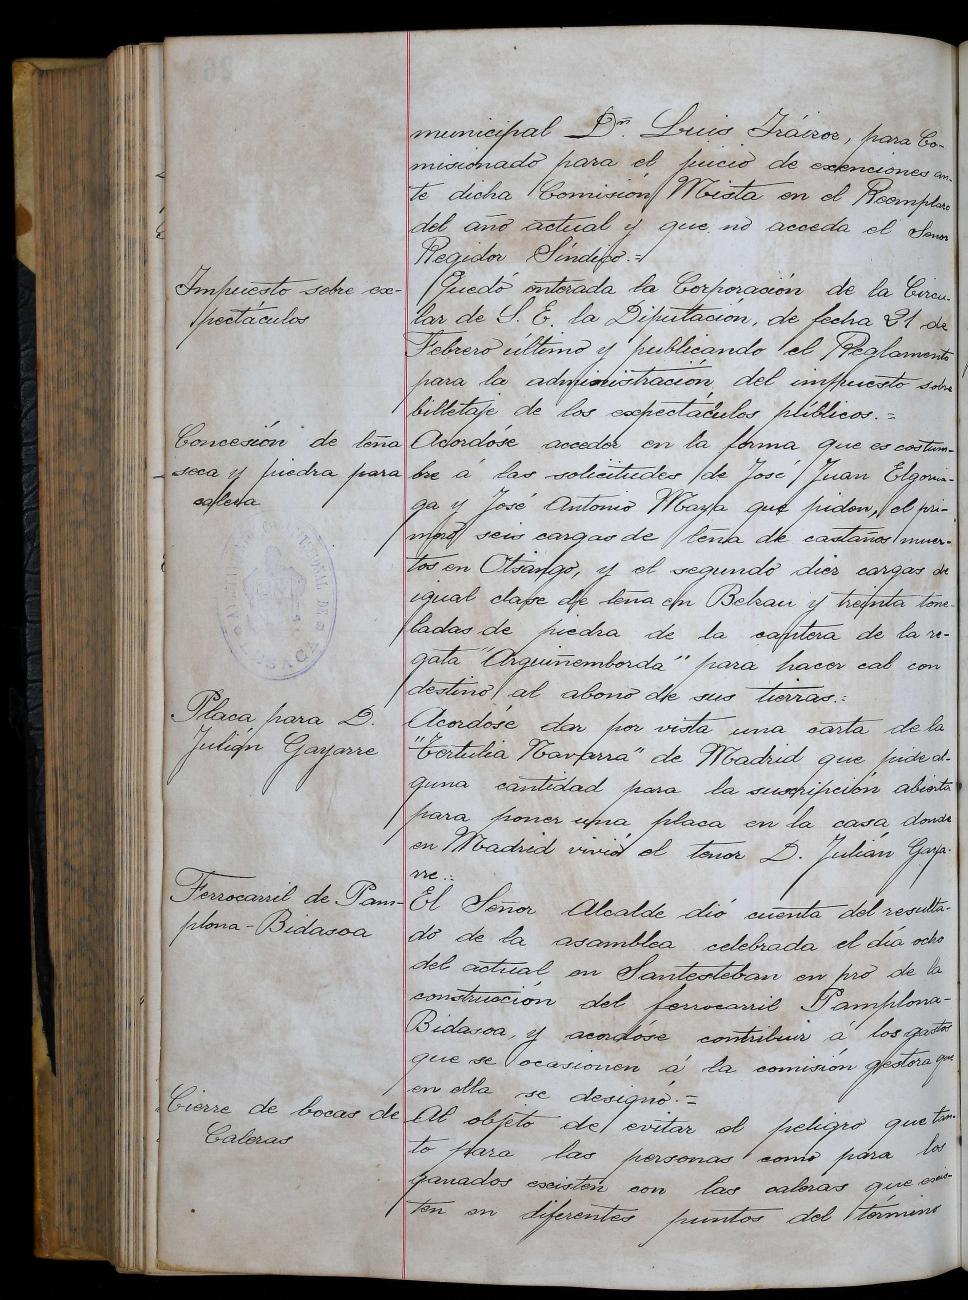 municipal Dn. Luis Iráizoz, para Co-
misionado para el juicio de exenciones an-
te dicha Comisión Mista en el Reemplazo
del año actual y que no acceda el Señor
Regidor Síndico.=
Impuesto sobre ex-
pectáculos
Quedó enterada la Corporación de la Circu-
lar de S. E. la Diputación, de fecha 21 de
Febrero último y publicando el Reglamento
para la administración del impuesto sobre
billetaje de los expectáculos públicos.=
Concesión de leña
seca y piedra para
calera
Acordóse acceder en la forma que es costum-
bre á las solicitudes de José Juan Elgorria-
ga y José Antonio Maya que piden, el pri-
mero seis cargas de leña de castaños muer-
tos en Otsango, y el segundo diez cargas de
igual clase de leña en Belzau y treinta tone-
ladas de piedra de la cantera de la re-
gata "Arguiñemborda" para hacer cal con
destino al abono de sus tierras.=
Placa para D.
Julián Gayarre
Acordóse dar por vista una carta de la
"Tertulia Navarra" de Madrid que pide al-
guna cantidad para la suscripción abierta
para poner una placa en la casa donde
en Madrid vivió el tenor D. Julián Gaya-
rre.=
Ferrocarril de Pam-
plona-Bidasoa
El Señor Alcalde dió cuenta del resulta-
do de la asamblea celebrada el día ocho
del actual en Santesteban en pro de la
construcción del ferrocarril Pamplona-
Bidasoa, y acordóse contribuir á los gastos
que se ocasionen á la comisión gestora que
en ella se designó.=
Cierre de bocas de
Caleras
Al objeto de evitar el peligro que tan-
to para las personas como para los
ganados excisten con las caleras que excis-
ten en diferentes puntos del término